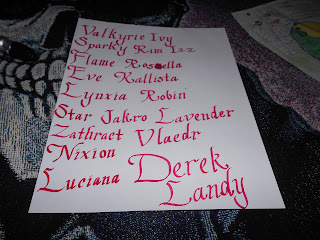 Valkyrie Ivy
Sparky Rim Izz
Flame Rosella
Eve Kallista
Lynxia Robin
Star Jakro Lavender
Zathract Vlaedr
Nixion
Luciana Derek
Landy